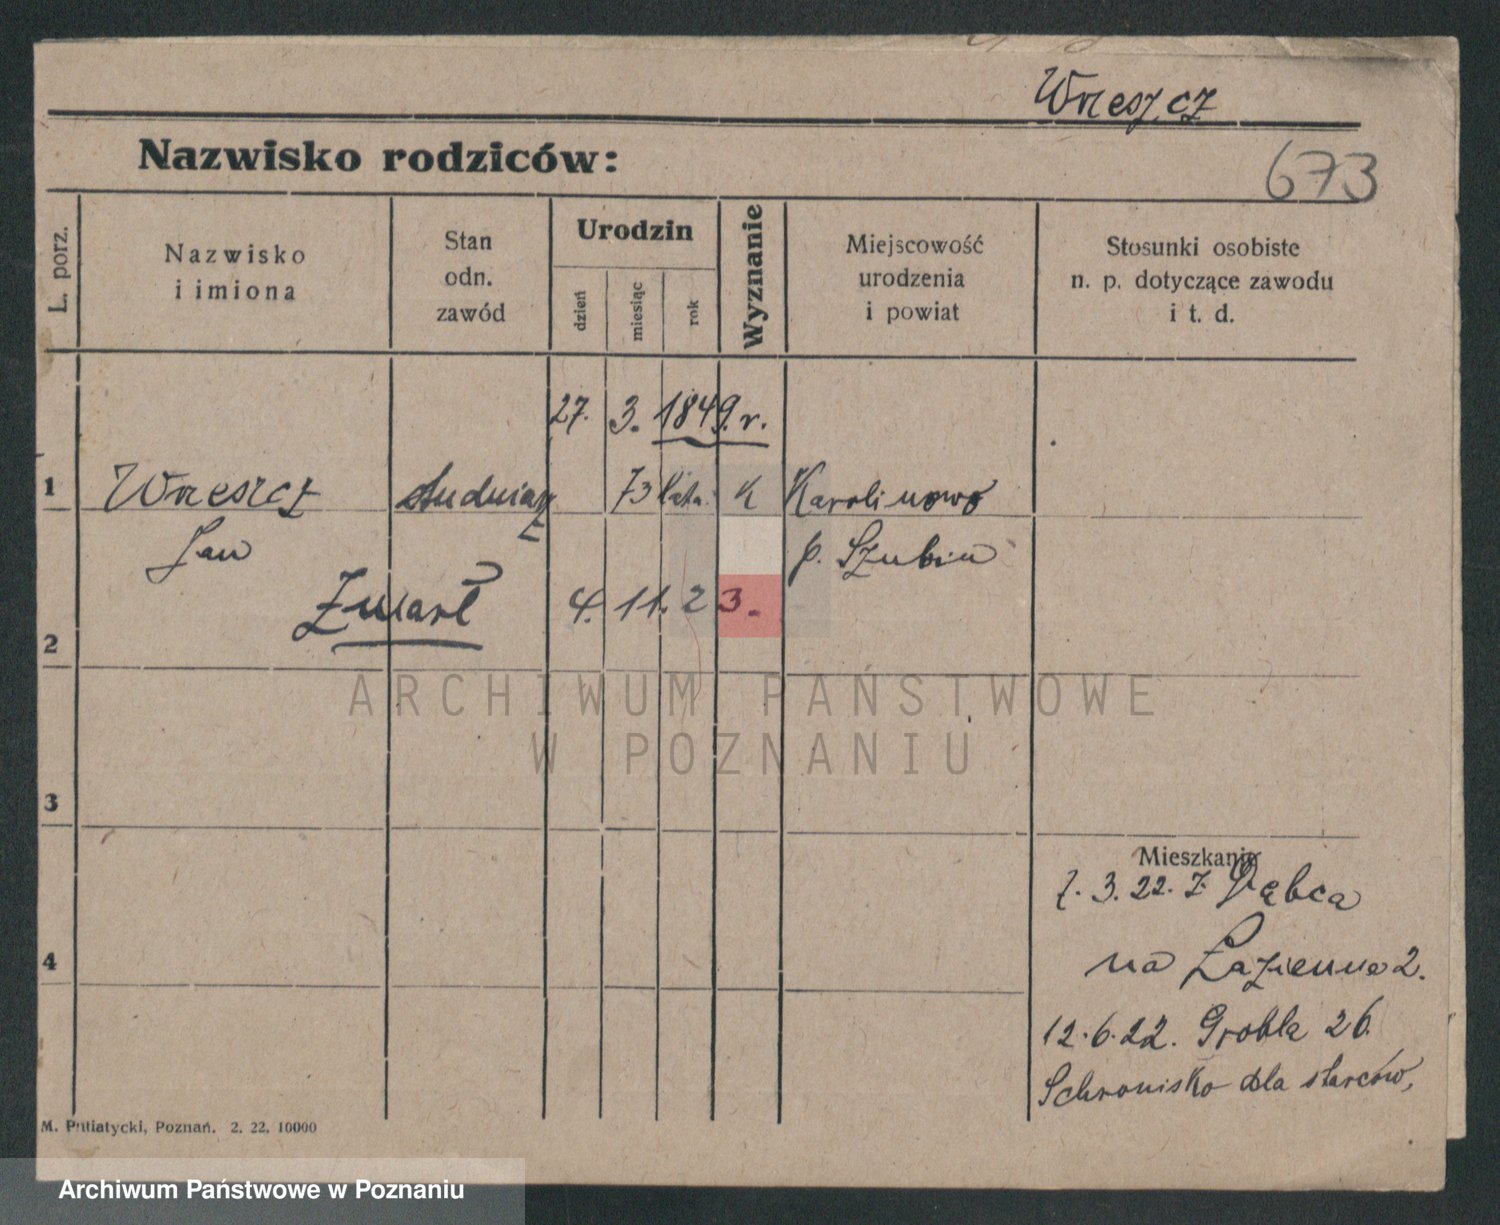 Wreszcz
Nazwisko rodziców:
673
L. porz.
Nazwisko
i imiona
Stan
odn.
zawód
Urodzin
dzień
miesiąc
rok
Wyznanie
Miejscowość
urodzenia
i powiat
Stosunki osobiste
n. p. dotyczące zawodu
i t. d.
27. 3. 1849. r.
1 Wreszcz 73 lata. K Karolinowo
Jan p. Szubin
Zmarł 4. 11. 23.
2
ARCHIWUM PAŃSTWOWE
W POZNANIU
3
Mieszkanie
7. 3. 22. z Dębca
4 na Łazienna 2.
12. 6. 22. Grobla 26
Schronisko dla starców,
M. Putiatycki, Poznań. 2. 22. 10000
Archiwum Państwowe w Poznaniu